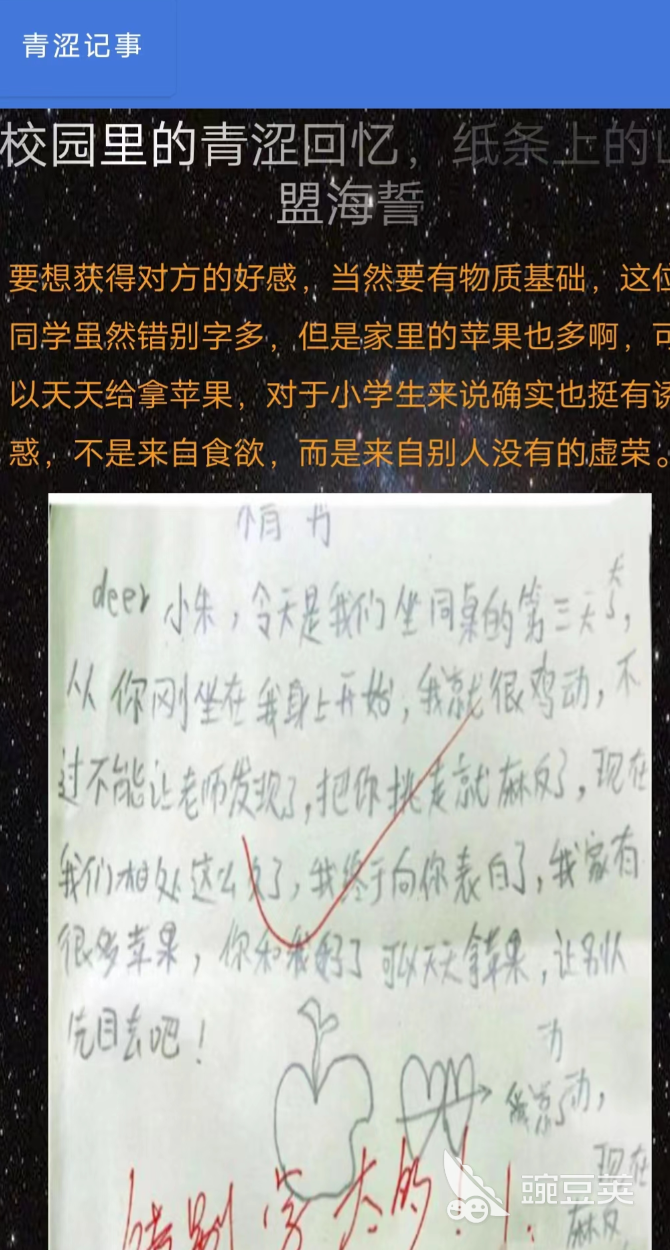 青涩记事
校园里的青涩回忆，纸条上的山
盟海誓
要想获得对方的好感，当然要有物质基础，这位
同学虽然错别字多，但是家里的苹果也多啊，可
以天天给拿苹果，对于小学生来说确实也挺有诱
惑，不是来自食欲，而是来自别人没有的虚荣。
情书
deer 小朱，今天是我们坐同桌的第三天了，
从你刚坐在我身上开始，我就很鸡动，不
过不能让老师发现了，把你挑走就麻反了，现在
我们相处这么久了，我终于向你表白了，我家有
很多苹果，你和我好了可以天天拿苹果，让别人
先目去吧！
动
动，
现在
错别字大的！！
麻反
豌豆荚